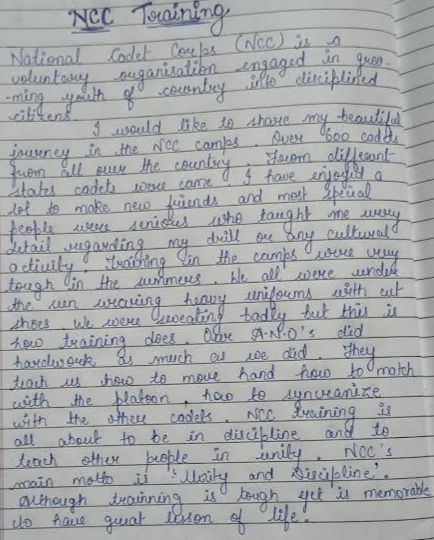 NCC Training
National Cadet Corps (NCC) is a
voluntary organisation engaged in groo-
-ming youth of country into disciplined
citizens
I would like to share my beautiful
journey in the NCC camps. Over 600 cadets
from all over the country. From different
states cadets were came. I have enjoyed a
lot to make new friends and most special
people were seniors who taught me very
detail regarding my drill or any cultural
activity. Training in the camps were very
tough in the summers. We all were under
the sun wearing heavy uniforms with cut
shoes. We were sweating badly but this is
how training does. Our A.N.O's did
hardwork as much as we did. They
teach us how to move hand how to match
with the platoon, how to syncranize
with the other cadets. NCC training is
all about to be in discipline and to
teach other people in unity. NCC's
main motto is 'Unity and Discipline'.
Although trainning is tough yet is memorable
to have great lesson of life.